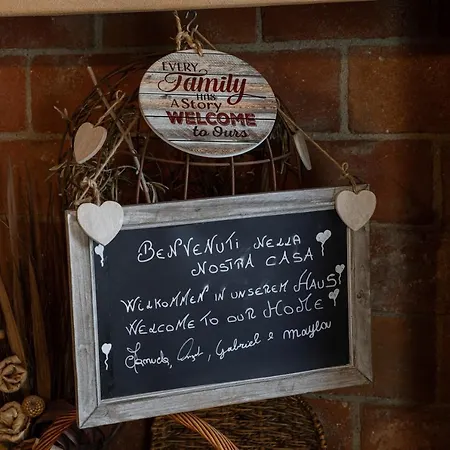 EVERY
Family
HAS
A Story
WELCOME
to Ours
BENVENUTI NELLA
NOSTRA CASA
WILLKOMMEN IN UNSEREM HAUS
WELCOME TO OUR HOME
Gabriel e mayla